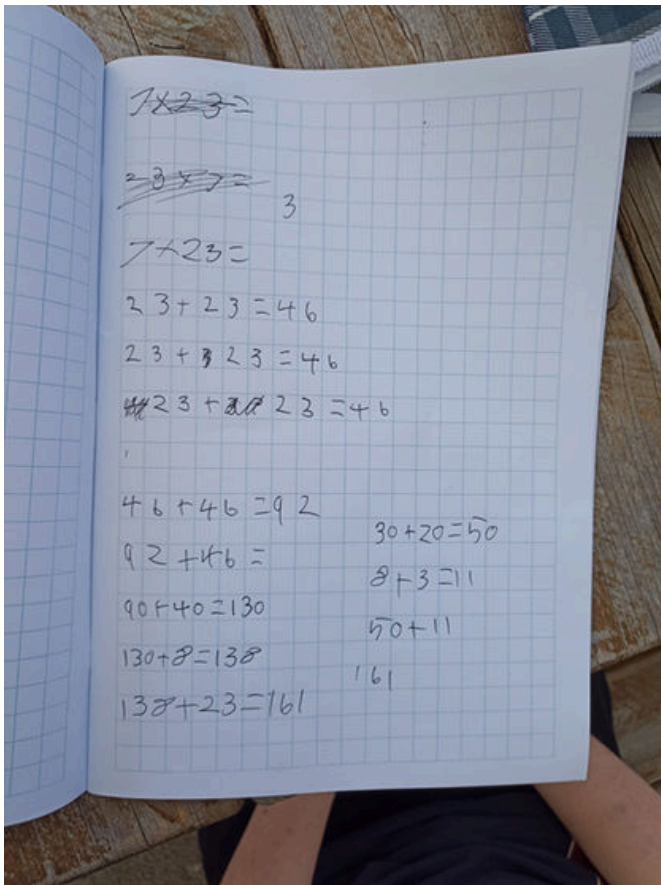 7×23=
23×7=
3
7×23=
23+23=46
23+23=46
23+23=46
46+46=92
92+46=
90+40=130
130+8=138
138+23=161
30+20=50
8+3=11
50+11
161